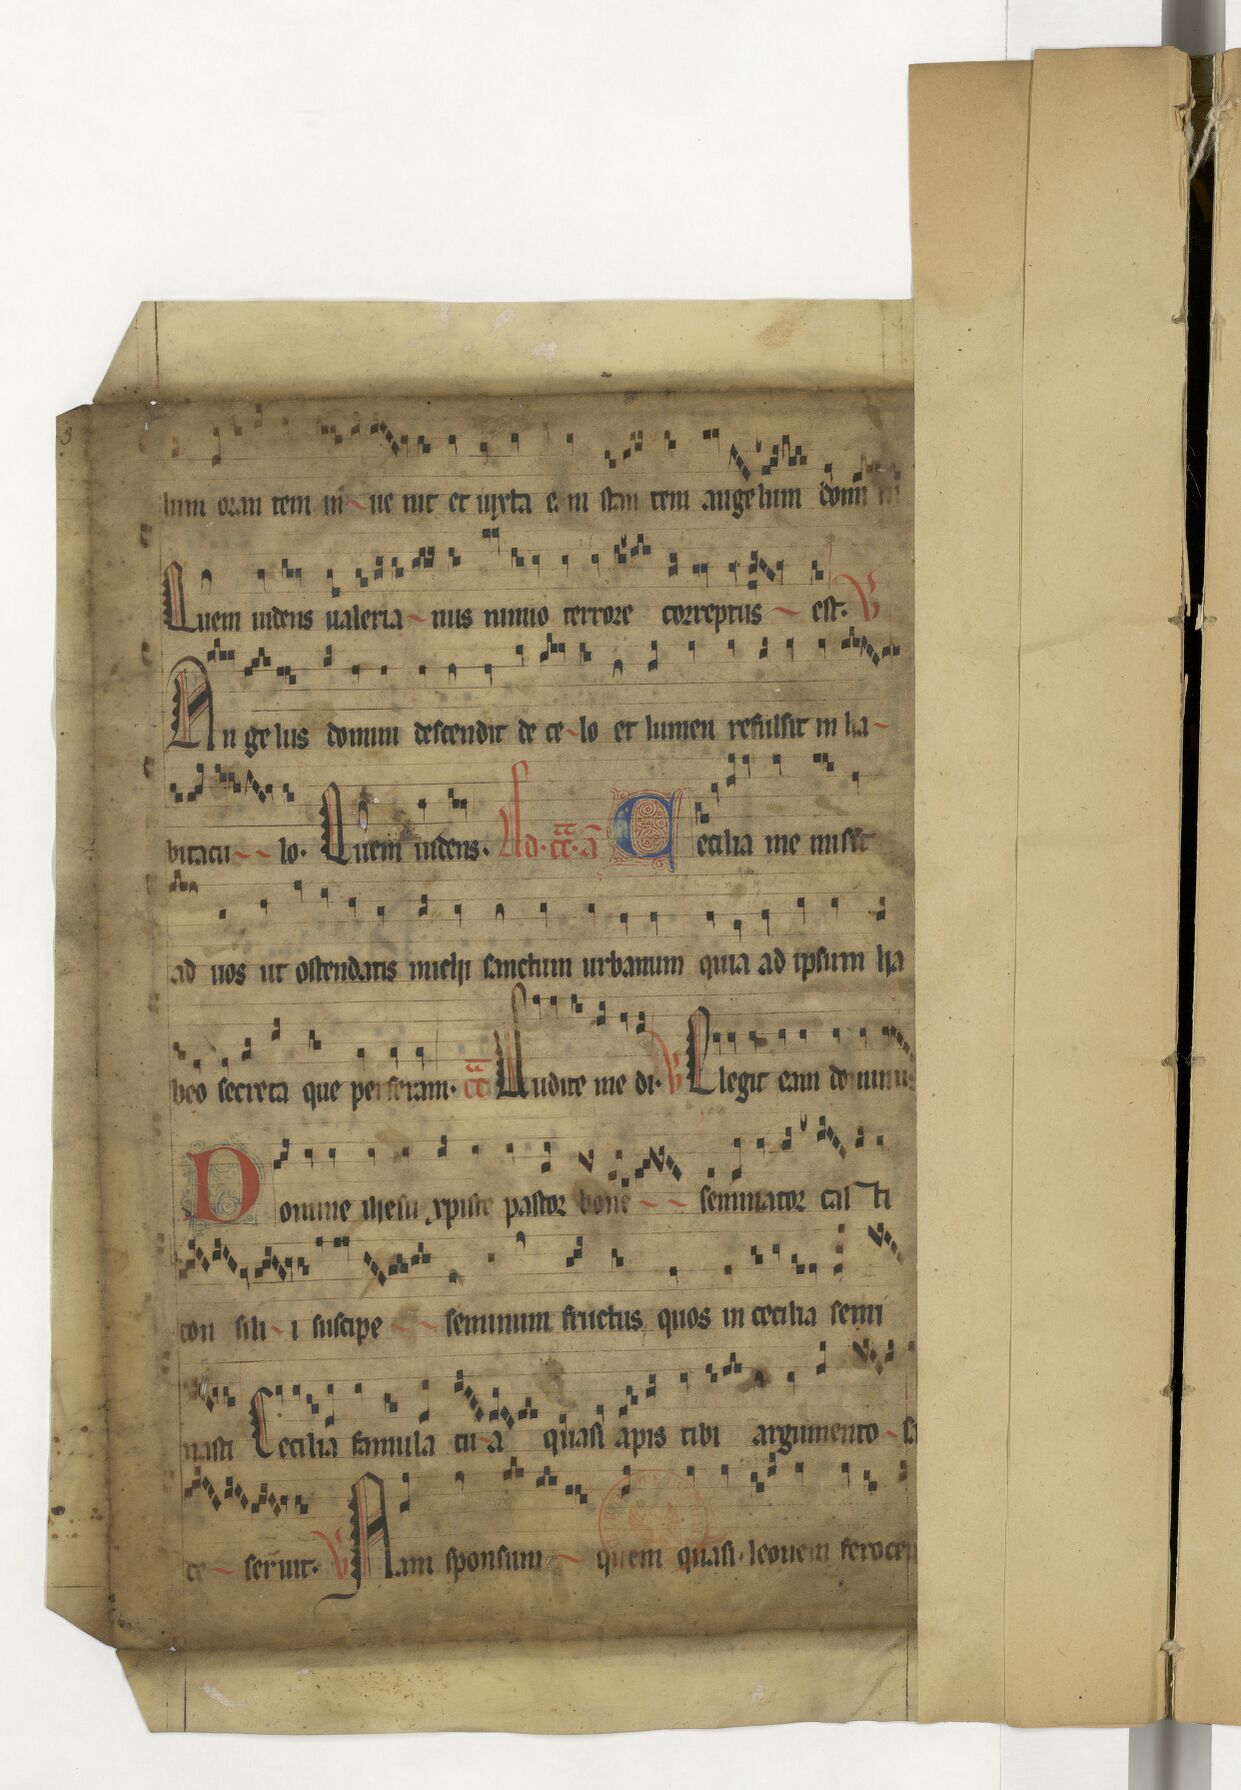 3
lium oran tem in ue nit et iuxta e m stan tem angelum domi ni
Quem uidens ualeria nus nimio terrore correptus est. V
An ge lus domini descendit de ce lo et lumen refulsit in ha
bitacu lo. Quem uidens. Ad. cc. a Cecilia me misit
ad uos ut ostendatis michi sanctum urbanum quia ad ipsum ha
beo secreta que perferam. Audite me di. V Elegit eam dominus
Domine ihesu xpiste pastor bone seminator cas ti
con sili i suscipe seminum fructus quos in cecilia semi
nasti Cecilia famula tu a quasi apis tibi argumento sa
te seruit. V Nam sponsum quem quasi leonem ferocem